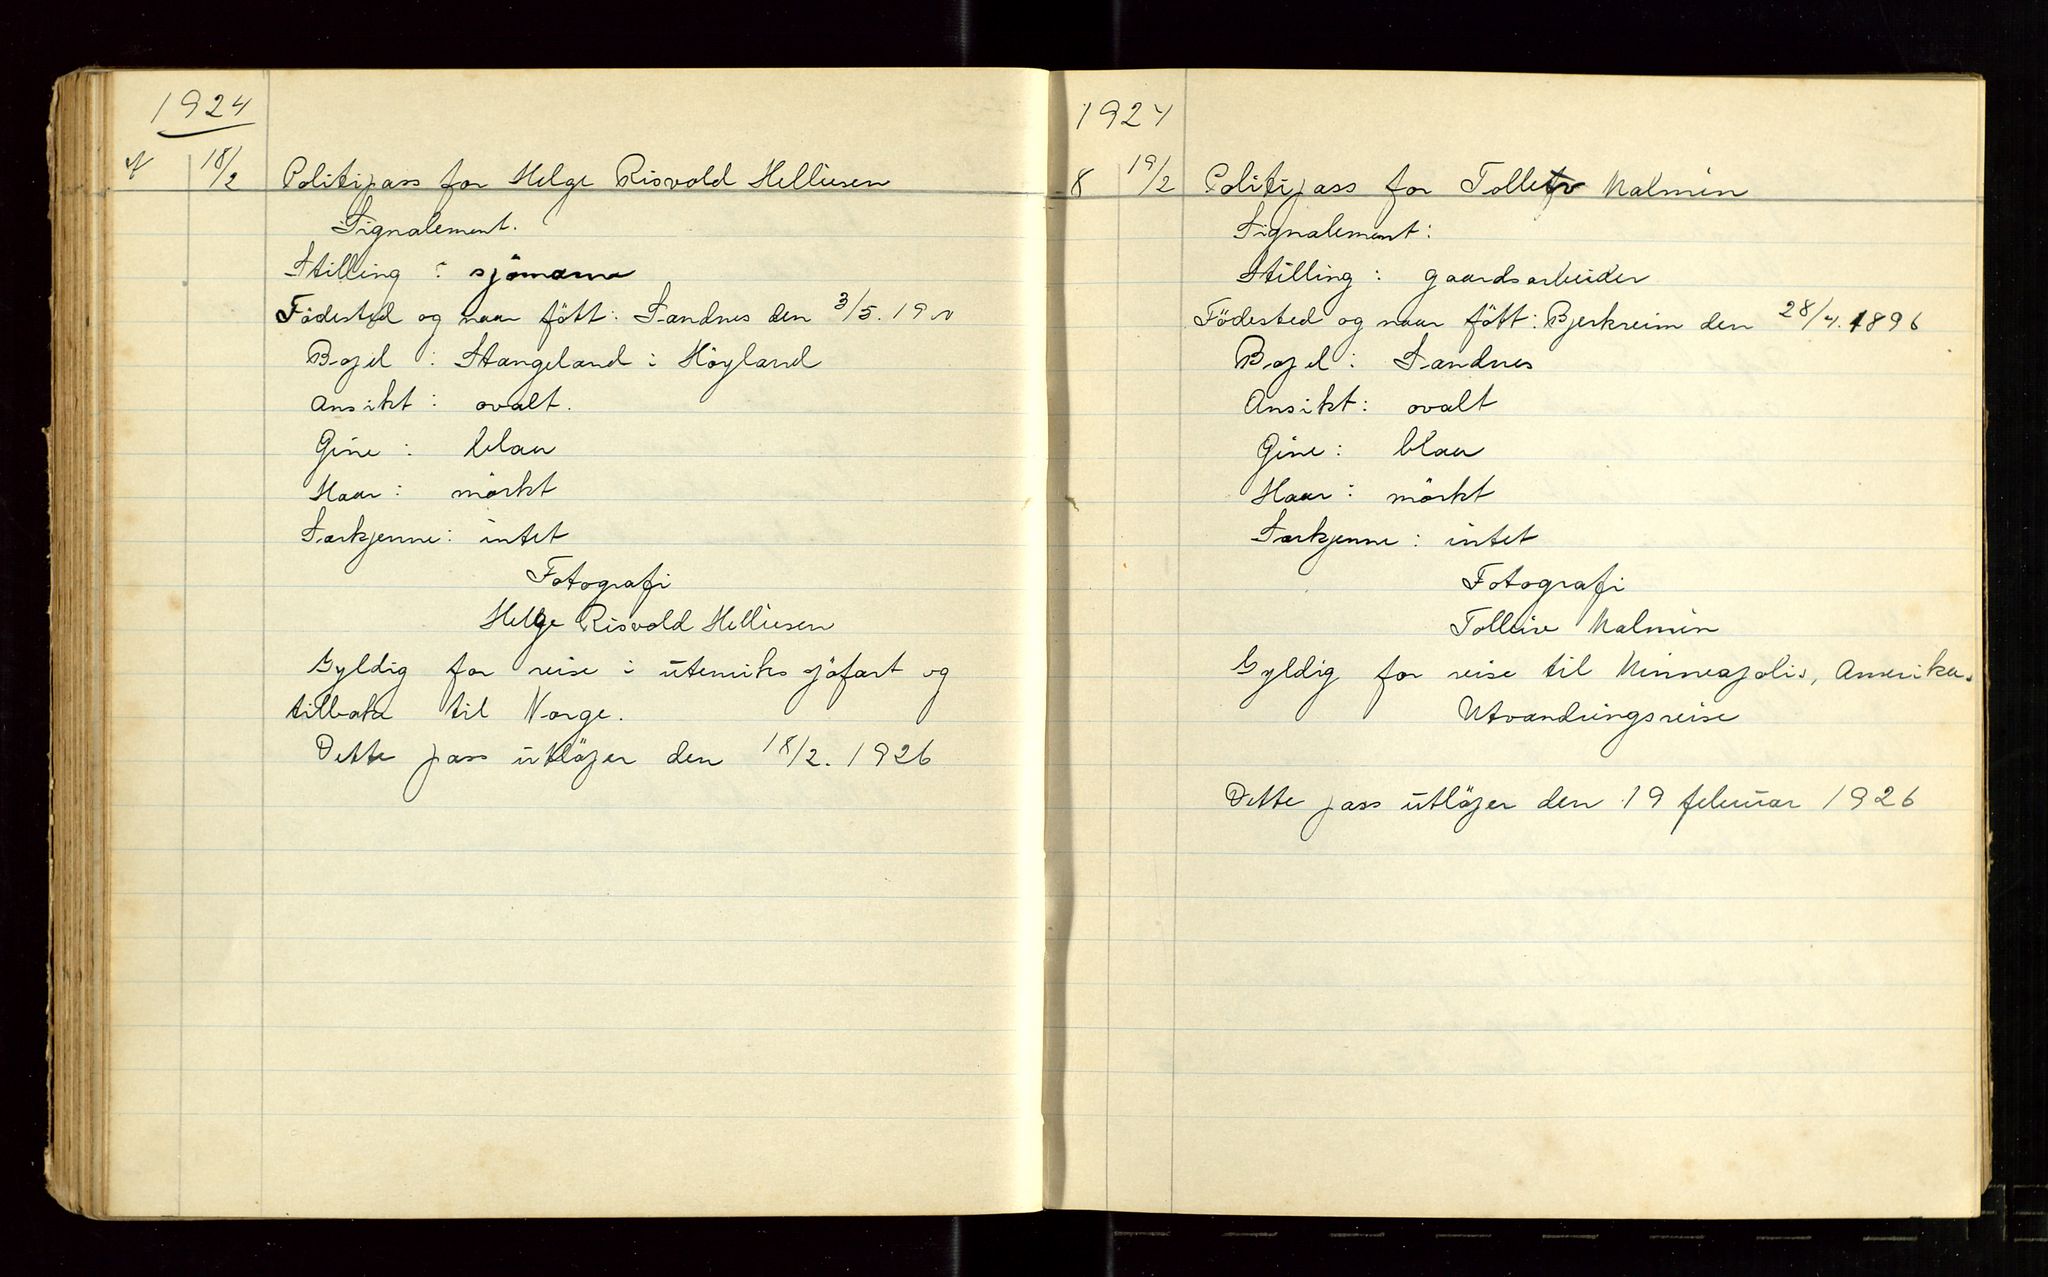 1924
18/2 Politipass for Helge Risvold Helliesen
Signalement.
Stilling : sjömann
Födested og naar fött: Sandnes den 3/5. 19
Bopel : Stangeland i Höyland
Ansikt : ovalt.
Öine : blaa
Haar : mörkt
Særkjenne : intet
Fotografi
Helge Risvold Helliesen
Gyldig for reise i utenriks sjöfart og
tilbake til Norge.
Dette pass utlöper den 18/2. 1926
1924
8 19/2 Politipass for Tolleiv Malmin
Signalement:
Stilling : gaardsarbeider
Födested og naar fött: Bjerkreim den 28/4. 1896
Bopel : Sandnes
Ansikt : ovalt
Öine : blaa
Haar : mörkt
Særkjenne : intet
Fotografi
Tolleiv Malmin
Gyldig for reise til Minneapolis, Amerika.
Utvandringsreise
Dette pass utlöper den 19 februar 1926